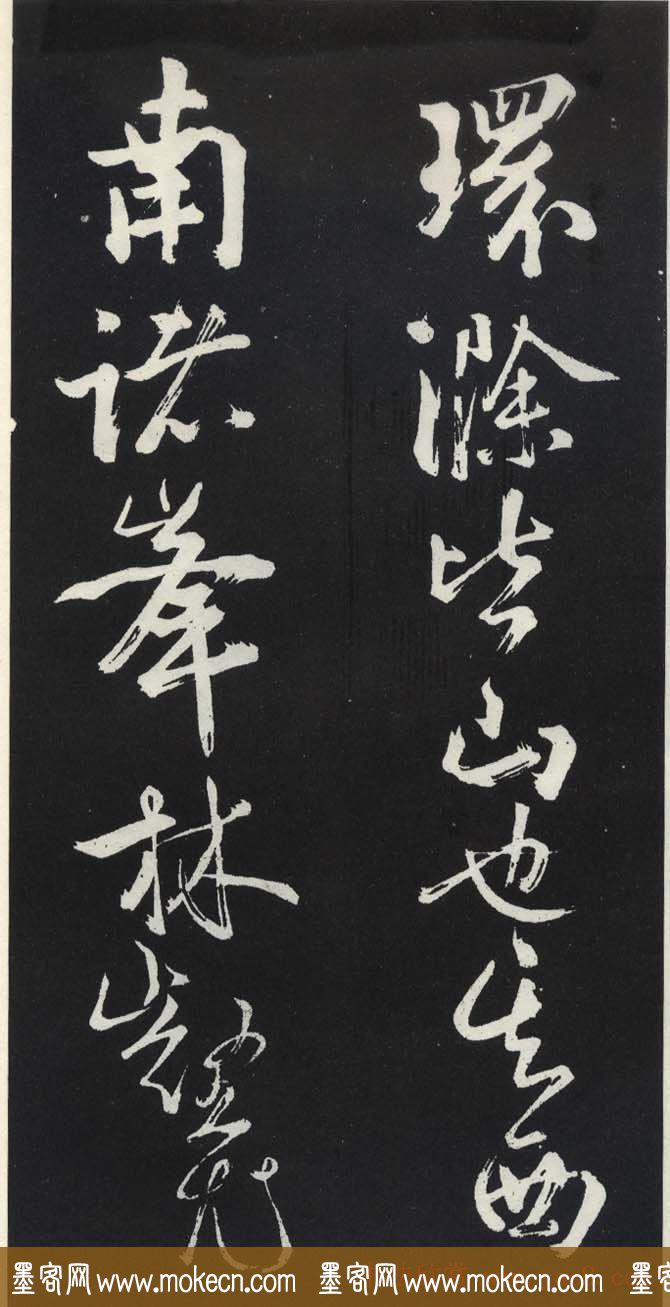 環滁皆山也其西
南諸峯林壑尤
墨客网 www.mokecn.com 墨客网 www.mokecn.com 墨客